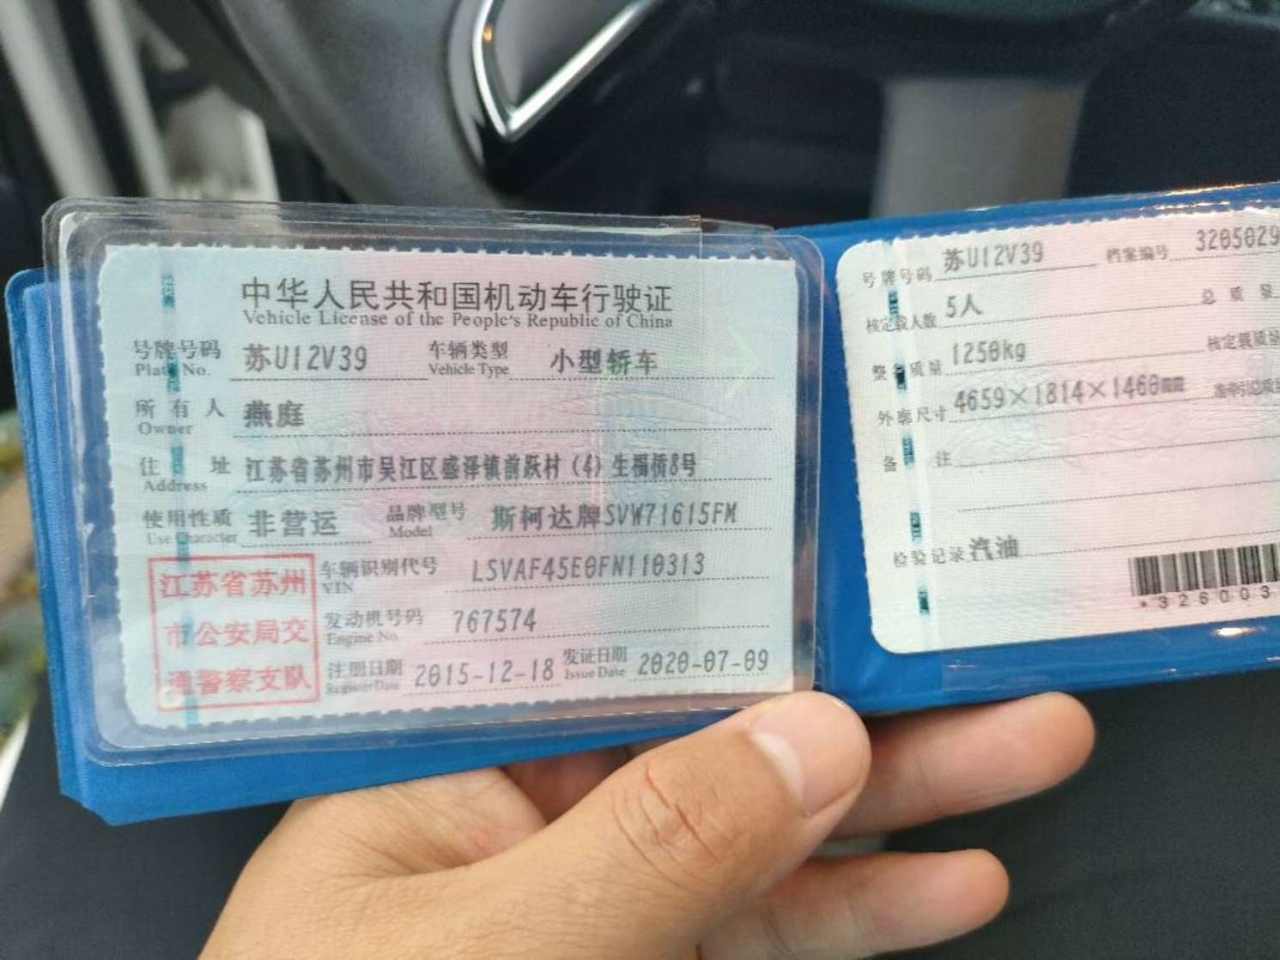 中华人民共和国机动车行驶证
Vehicle License of the People's Republic of China
号牌号码 苏U12V39 车辆类型 小型轿车
Plate No. Vehicle Type
所有人 燕庭
Owner
住址 江苏省苏州市吴江区盛泽镇前跃村(4)生福桥8号
Address
使用性质 非营运 品牌型号 斯柯达牌SVW71615FM
Use Character Model
车辆识别代号 LSVAF45E0FN110313
VIN
发动机号码 767574
Engine No.
注册日期 2015-12-18 发证日期 2020-07-09
Register Date Issue Date
江苏省苏州
市公安局交
通警察支队
号牌号码 苏U12V39 档案编号 3205029
核定载人数 5人 总质量
整备质量 1250kg 核定载质量
外廓尺寸 4659×1814×1460mm 准牵引总质
备注
检验记录 汽油
*326003